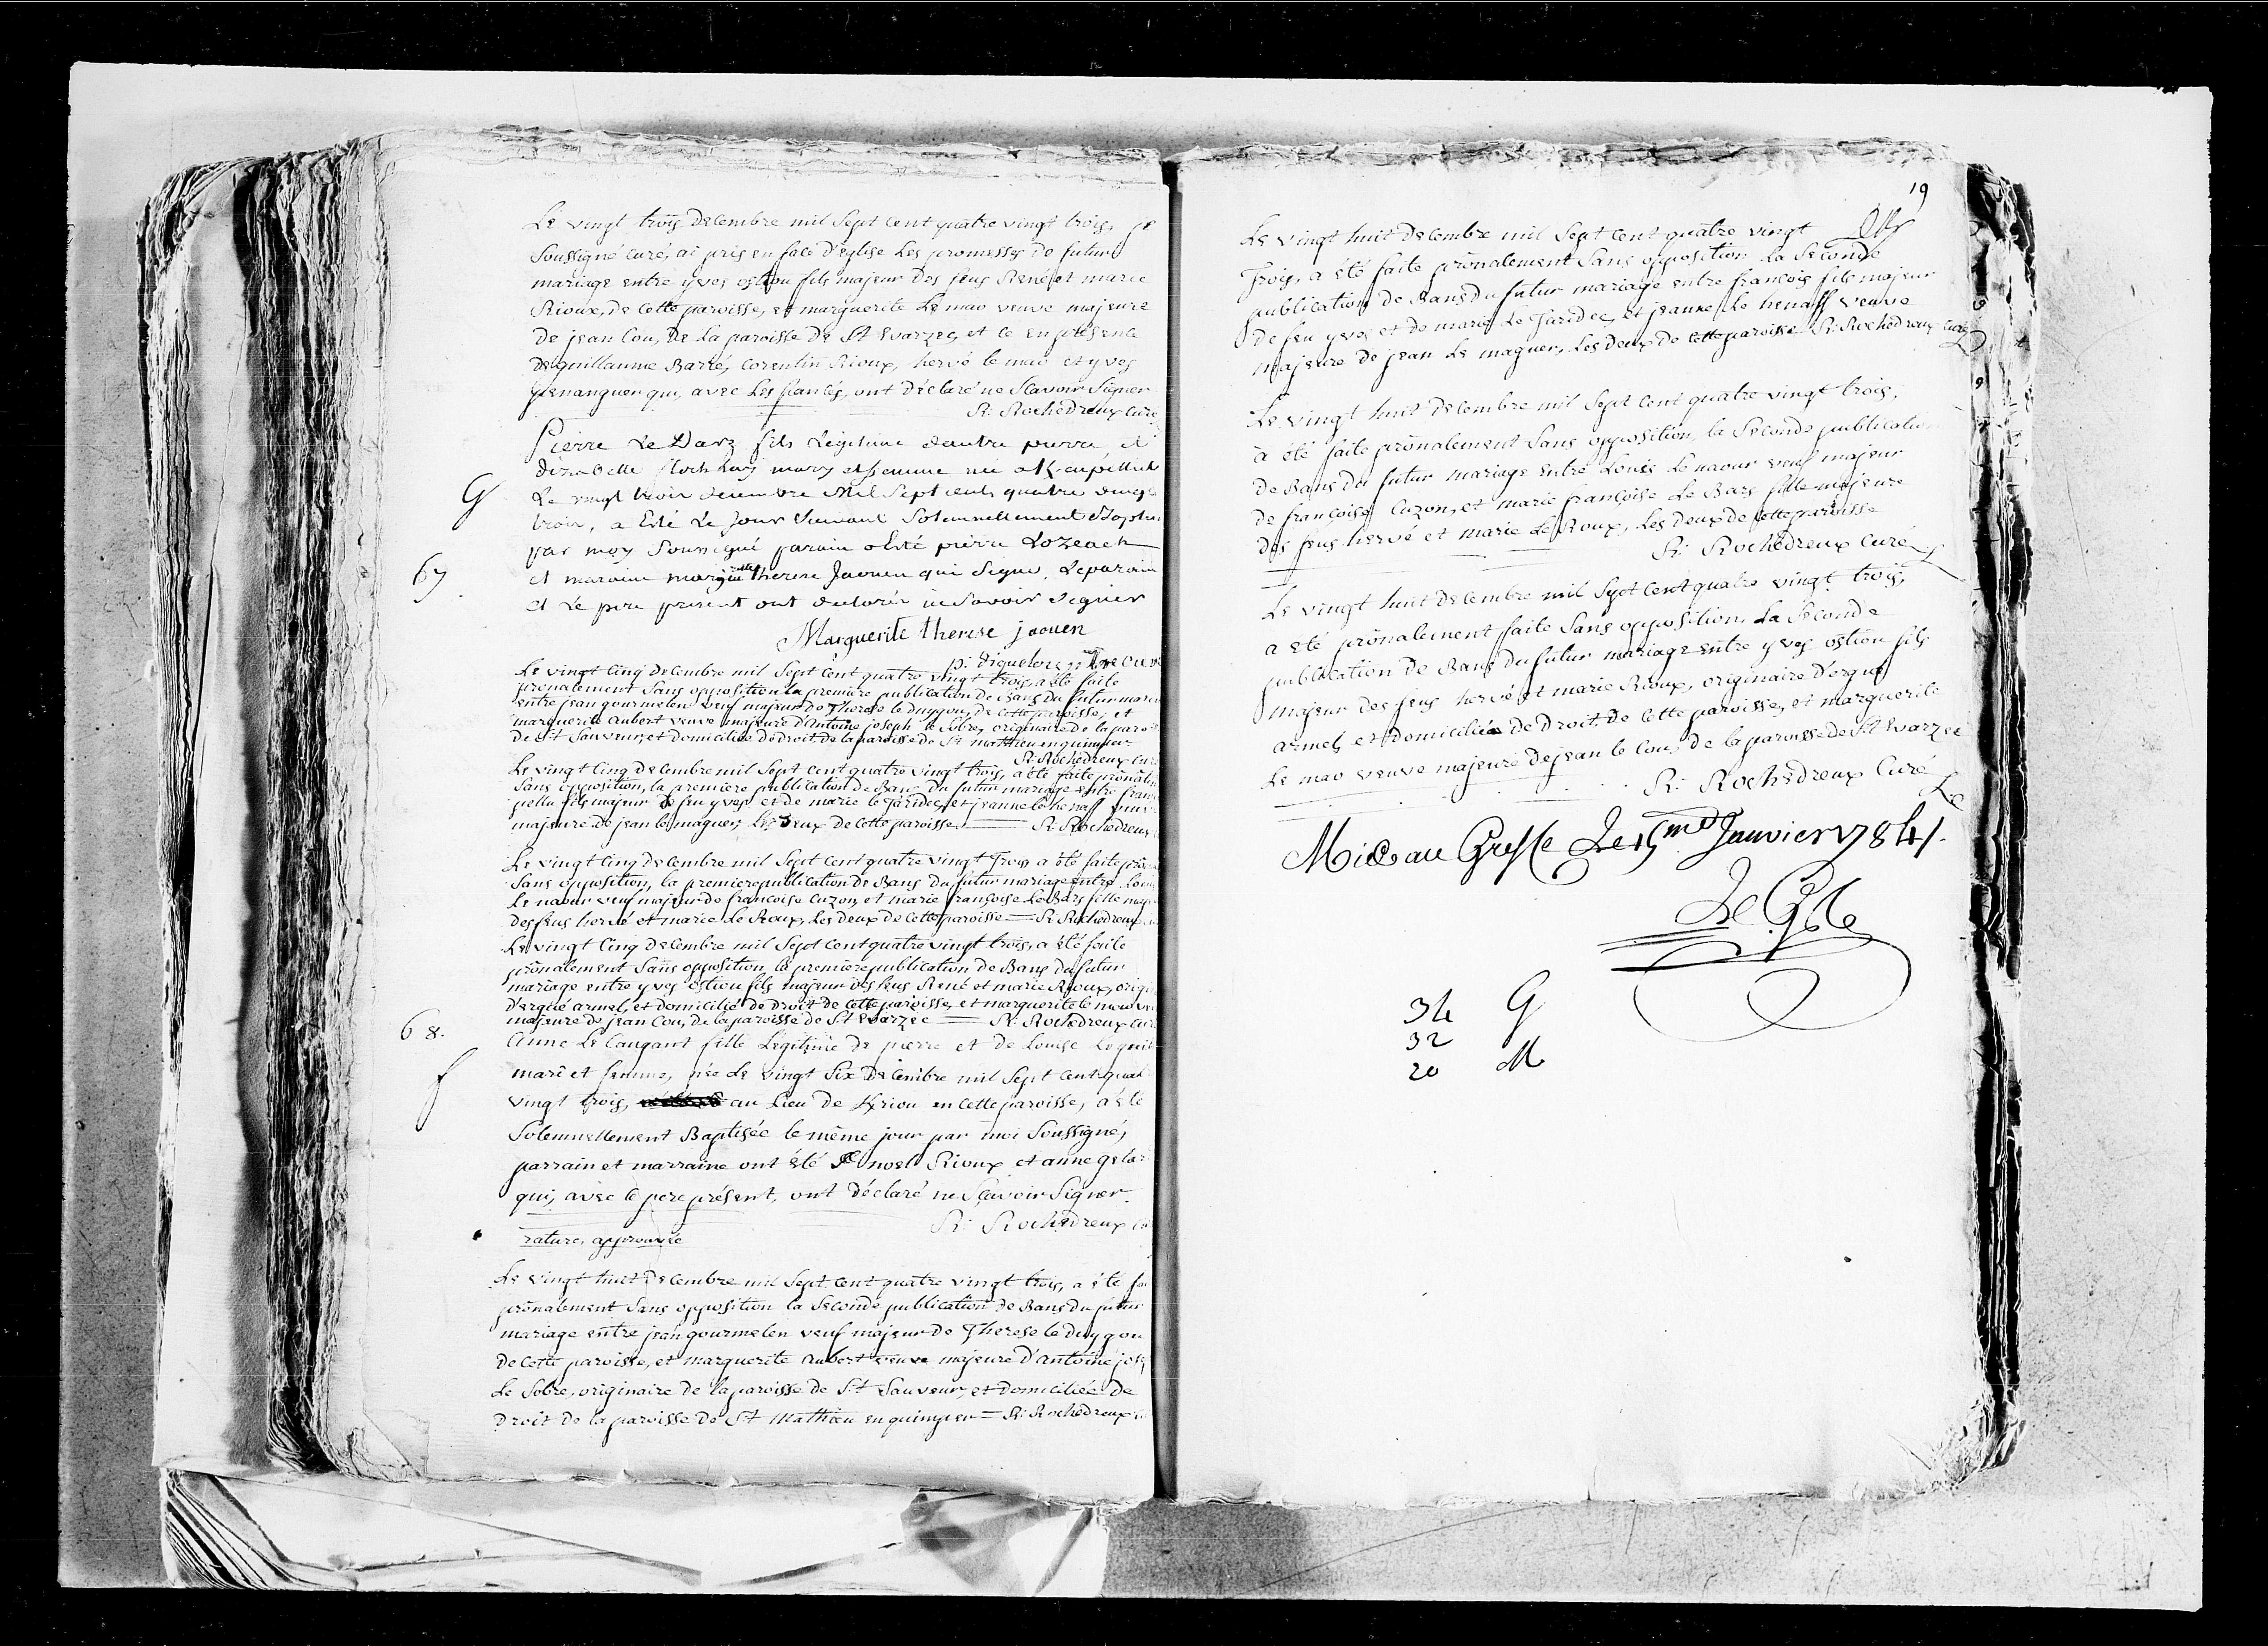 Le vingt trois Decembre mil Sept Cent quatre vingt trois, je
Soussigné curé, ai pris en face d'Eglise Les promesses de futur
mariage entre yves ostiou fils majeur Des feus René et marie
Rioux, de Cette paroisse, et marguerite Le mao veuve majeure
De jean Cou, De La paroisse De St Evarzec, et ce en présence
De guillaume Barré, Corentin Rioux, hervé le mao et yves
qui, avec Les fiancés, ont Déclaré ne Scavoir Signer
R: Rochedreux Curé
Pierre Le Darz fils Légitime dautre pierre et
dizabelle mary et femme né a
G
Le vingt trois decembre Mil Sept cents quatre vingt
trois, a Eté Le jour Suivant Solemnellement Baptis
par moy Soussigné parain a Esté pierre Lozeach
67
et maraine margüitte therese Jaouen qui Signe. Le parain
et Le pere present ont declarés ne Savoir Signer
Marguerite therese jaouen
Le vingt Cinq Decembre mil Sept Cent quatre vingt trois, a été faite
prônalement Sans opposition La premiere publication De Bans Du futur maria
entre jean gourmelen veuf majeur De Therese le Duygou, De Cette paroisse, et
marguerite aubert veuve majeure D'antoine joseph le Sobre, originaire de la paro
De St Sauveur, et Domiciliée De Droit De la paroisse De St mathieu en quimper
R: Rochedreux Cur
Le vingt Cinq Decembre mil Sept Cent quatre vingt trois, a été faite prônalem
Sans opposition, la premiere publication De Bans Du futur mariage entre franc
fils majeur De feu yves et de marie le faridec, et jeanne le henaff veuve
majeure De jean le maguer, les Deux de Cette paroisse R: Rochedreux
Le vingt Cinq Decembre mil Sept Cent quatre vingt Trois, a été faite prôn
Sans opposition, la premiere publication De Bans Du futur mariage entre Louis
Le naour veuf majeur De françoise Cuzon, et marie françoise Le Bars fille maj
Des feus hervé et marie Le Roux, Les Deux de Cette paroisse R: Rochedreux
Le vingt Cinq Decembre mil Sept Cent quatre vingt trois, a été faite
prônalement Sans opposition la premiere publication De Bans Du futur
mariage entre yves ostiou fils majeur Des feus René et marie Rioux, origi
D'ergué armel, et Domicilié De Droit De Cette paroisse, et marguerite le mao ve
majeure De jean Cou, De la paroisse De St Evarzec R: Rochedreux Cur
68.
Anne Le Caugant fille Légitime De pierre et de Louise
f
mari et femme, née Le vingt Six Decembre mil Sept Cent quat
vingt trois, au Lieu De Kriou en Cette paroisse, a été
Solemnellement Baptisée le même jour par moi Soussigné,
parrain et marraine ont été noel Rioux et anne
qui, avec le pere présent, ont Déclaré ne Scavoir Signer
R: Rochedreux Cu
rature, approuvée
Le vingt huit Decembre mil Sept Cent quatre vingt trois, a été fai
prônalement Sans opposition la Seconde publication De Bans Du futur
mariage entre jean gourmelen veuf majeur De Therese le Duygou
De Cette paroisse, et marguerite aubert veuve majeure D'antoine jos
Le Sobre, originaire De la paroisse De St Sauveur, et Domiciliée De
Droit De la paroisse De St Mathieu en quimper = R: Rochedreux
19
Le vingt huit Decembre mil Sept Cent quatre vingt
Trois, a été faite prônalement Sans opposition La Seconde
publication De Bans Du futur mariage entre françois fils majeur
De feu yves et De marie Le Faridec, et jeanne Le henaff veuve
majeure De jean Le maguer, Les Deux De Cette paroisse R: Rochedreux Curé
Le vingt huit Decembre mil Sept Cent quatre vingt trois,
a été faite prônalement Sans opposition, la Seconde publication
De Bans Du futur mariage entre Louis Le naour veuf majeur
De françoise Cuzon, et marie françoise Le Bars fille majeure
Des feus hervé et marie Le Roux, Les Deux De Cette paroisse
R: Rochedreux Curé
Le vingt huit Decembre mil Sept Cent quatre vingt trois,
a été prônalement faite Sans opposition, La Seconde
publication De Bans Du futur mariage entre yves ostiou fils
majeur Des feus hervé et marie Rioux, originaire D'ergué
armel, et Domicilié De Droit De Cette paroisse, et marguerite
Le mao veuve majeure De jean le Cou, De la paroisse De St Evarzec
R: Rochedreux Curé
au Greffe Le 15me Janvier 1784
34 G
32
20 M